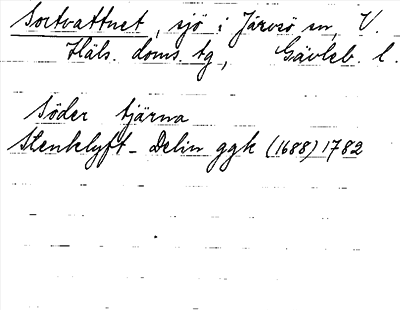 Sortvattnet, sjö i Järvsö sn, V.
Häls. doms. tg, Gävleb. l.
Söder tjärna
Stenklyft - Delin ggk (1688) 1782